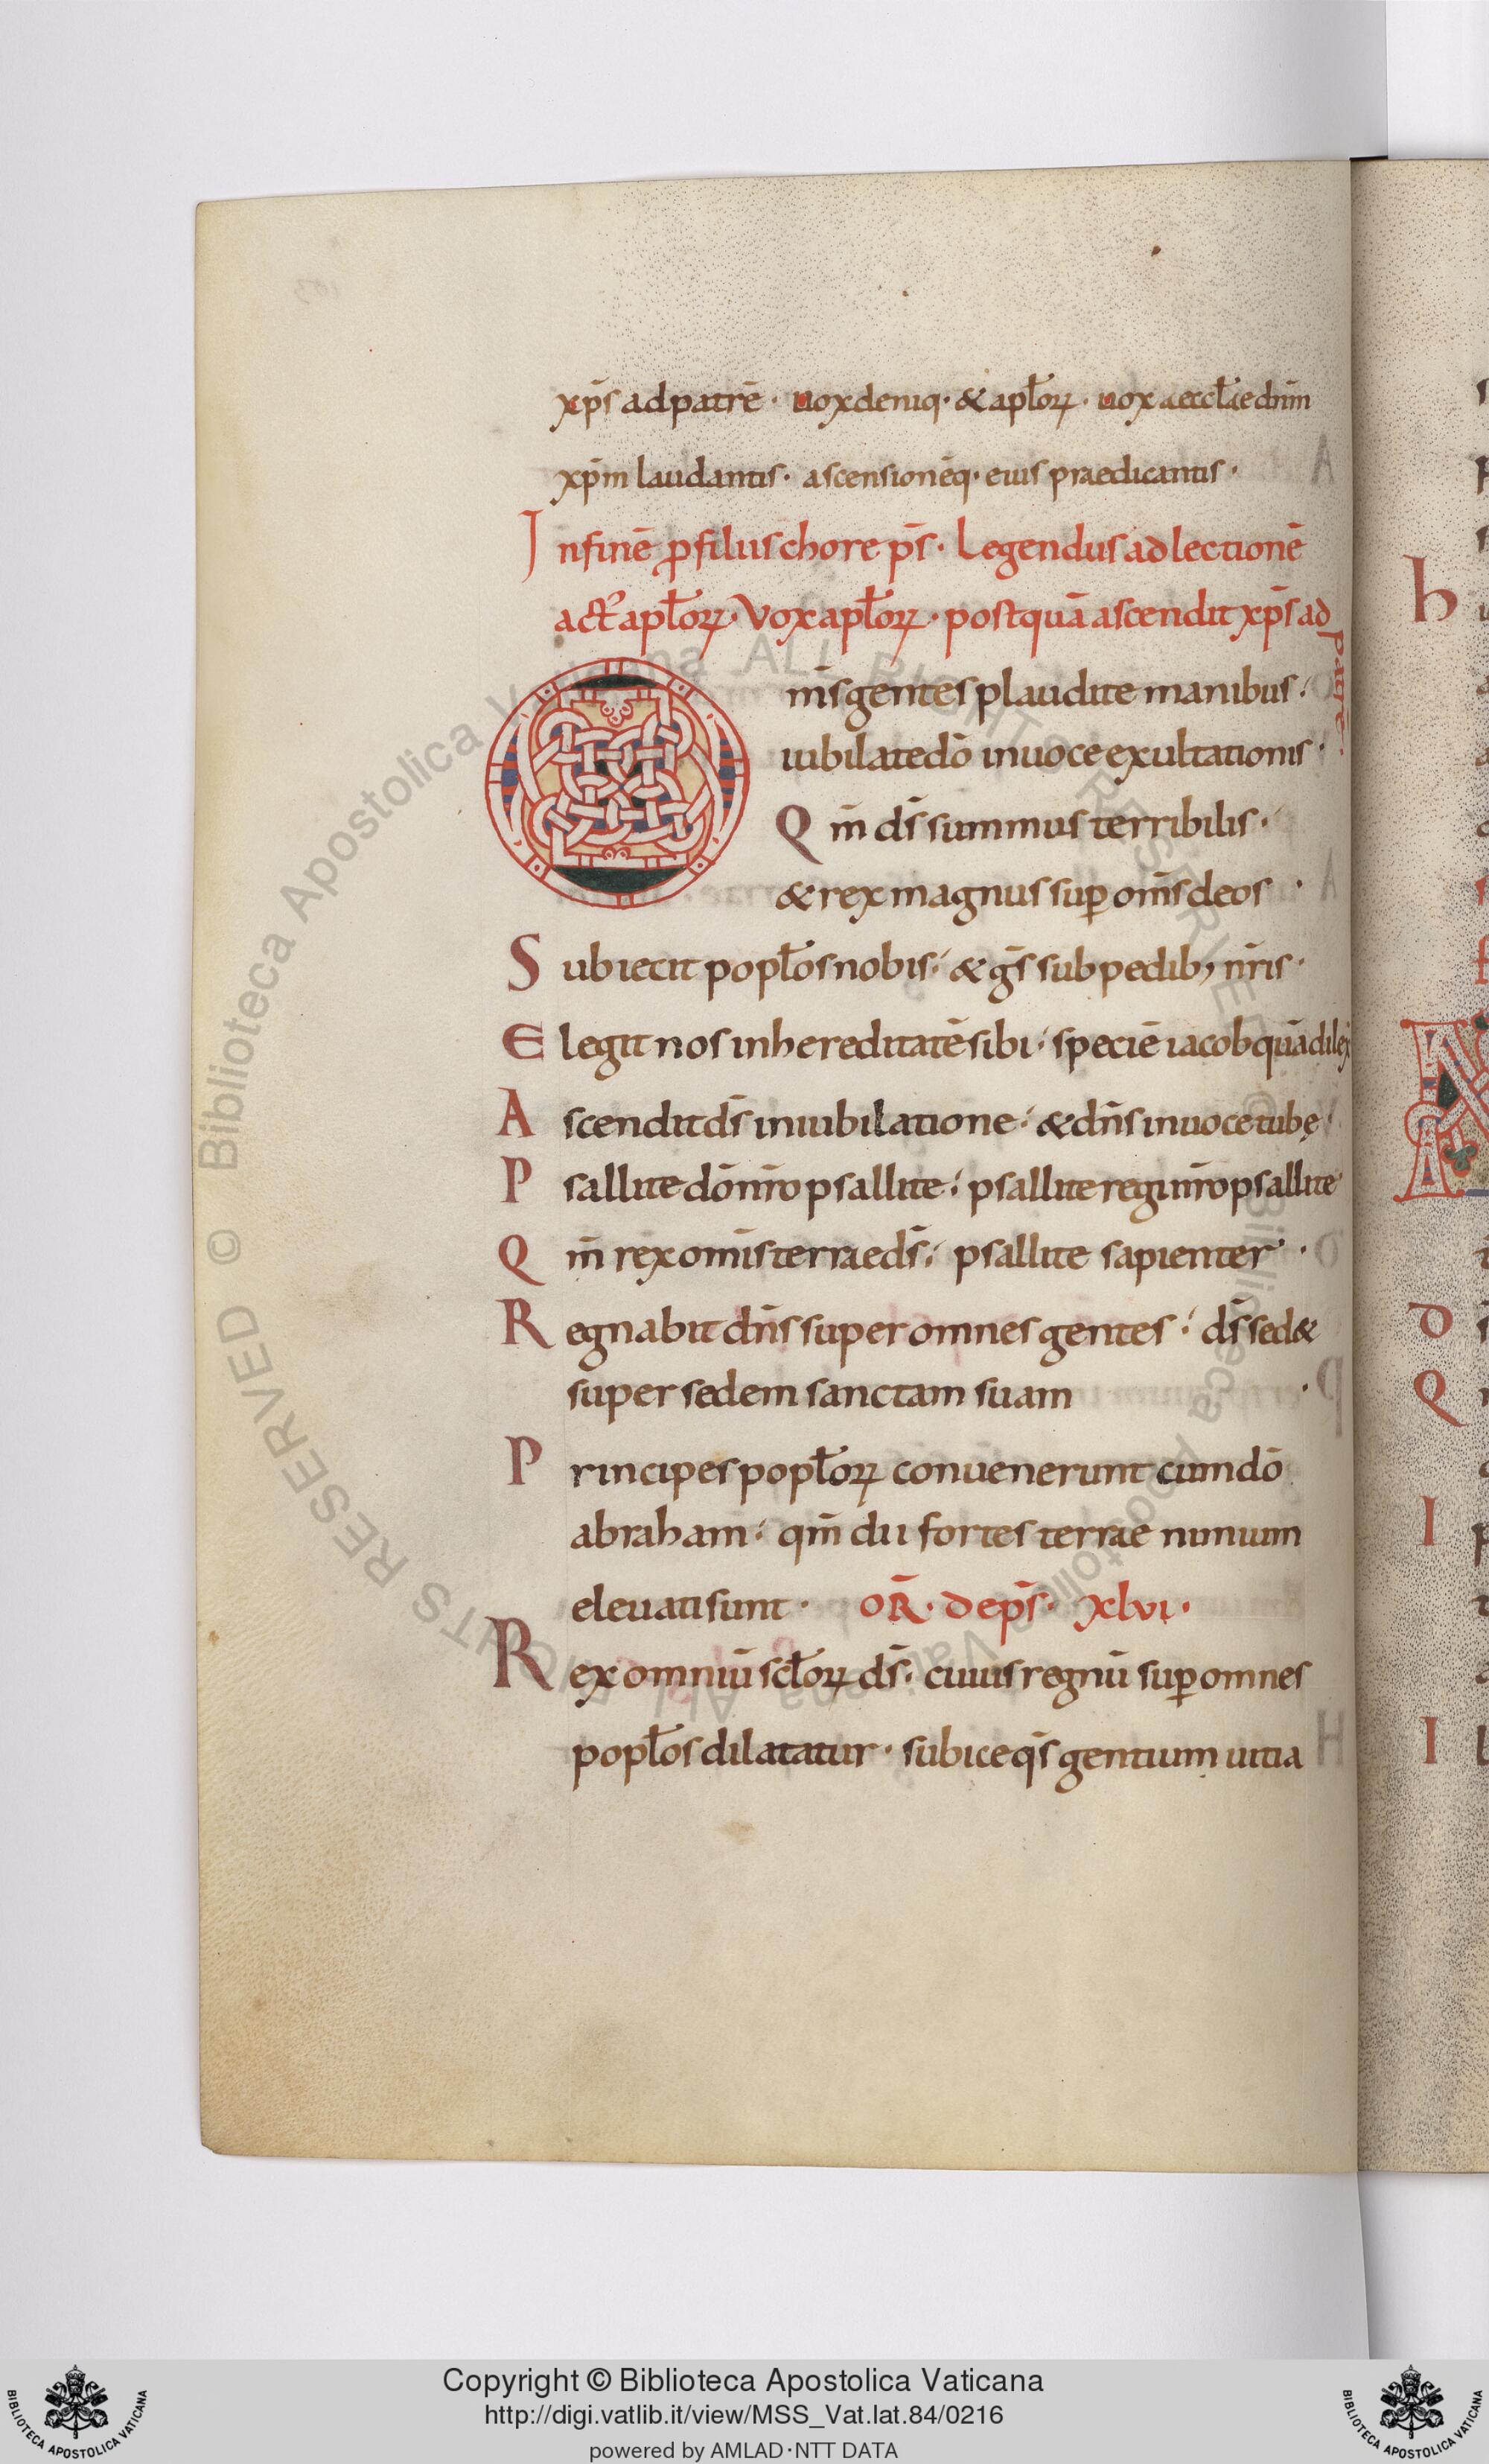 xp̄s ad patrē · uox deniq· & apł̄oꝝ · uox aeccl̄ae dn̄m
xp̄m laudantis · ascensionēq· eius praedicantis ·
In finē ꝓ filiis chore ps̄ · Legendus ad lectionē
act̄ apłoꝝ · Vox apłoꝝ · postquā ascendit xp̄s ad
patrē ·
Om̄s gentes plaudite manibus ·
iubilate dō in uoce exultationis ·
Qm̄ ds̄ summus terribilis ·
& rex magnus suꝑ om̄s deos ·
Subiecit popłos nobis · & gs̄ sub pedib; nr̄is ·
Elegit nos in hereditatē sibi · speciē iacob quā dilex̄
Ascendit ds̄ in iubilatione · & dn̄s in uoce tubę
Psallite dō nr̄o psallite · psallite regi nr̄o psallite
Qm̄ rex omīs terrae ds̄ · psallite sapienter ·
Regnabit dn̄s super omnes gentes · ds̄ sed&
super sedem sanctam suam ·
Principes popłoꝝ conuenerunt cum dō
abraham · qm̄ dii fortes terrae nimium
eleuati sunt · OR̄ · De ps̄ · xlvi ·
Rex omniū scł̄oꝝ ds̄ · cuius regnū suꝑ omnes
popłos dilatatur · subice qs̄ gentium uitia
© Biblioteca Apostolica Vaticana ALL RIGHTS RESERVED
Copyright © Biblioteca Apostolica Vaticana
http://digi.vatlib.it/view/MSS_Vat.lat.84/0216
powered by AMLAD·NTT DATA
BIBLIOTECA APOSTOLICA VATICANA
BIBLIOTECA APOSTOLICA VATICANA